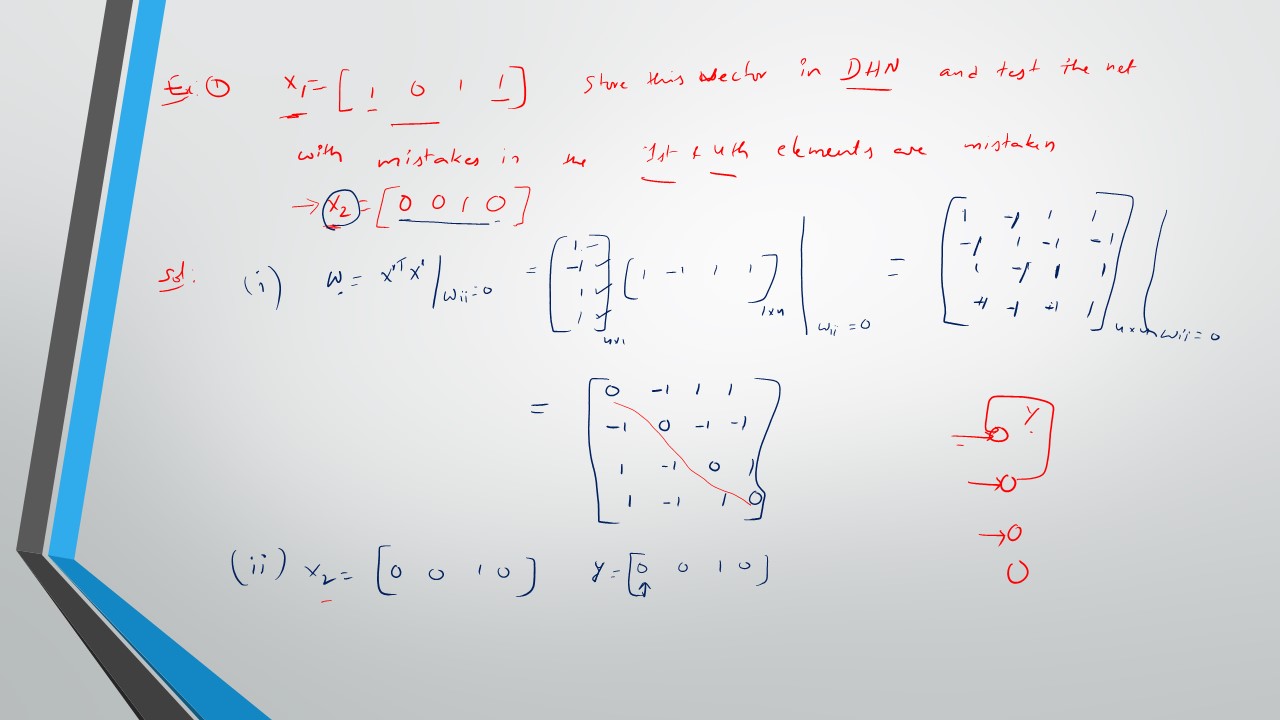 Ex: ① x₁ = [ 1 0 1 1 ] Store this vector in DHN and test the net
with mistakes in the 1st & 4th elements are mistaken
→ x₂ = [ 0 0 1 0 ]
Sol: (i) w = x'ᵀ x' | wii=0 = [ 1 -1 1 1 ] 4x1 [ 1 -1 1 1 ] 1x4 | wii=0 = [ 1 -1 1 1
-1 1 -1 -1
1 -1 1 1
+1 -1 +1 1 ] 4x4 | wii=0
= [ 0 -1 1 1
-1 0 -1 -1
1 -1 0 1
1 -1 1 0 ]
Y
(ii) x₂ = [ 0 0 1 0 ] y = [ 0 0 1 0 ]